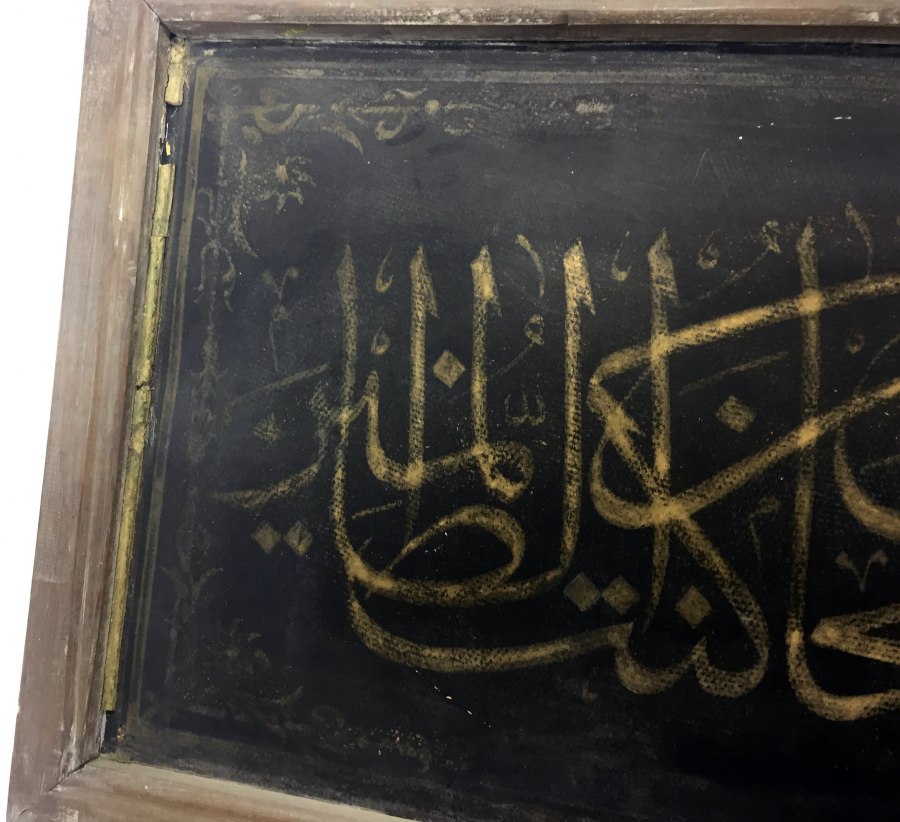 إني كنت من الظالمين